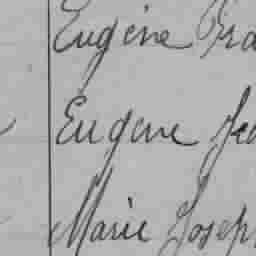 Eugène Fra
Eugene Jea
Marie Joseph